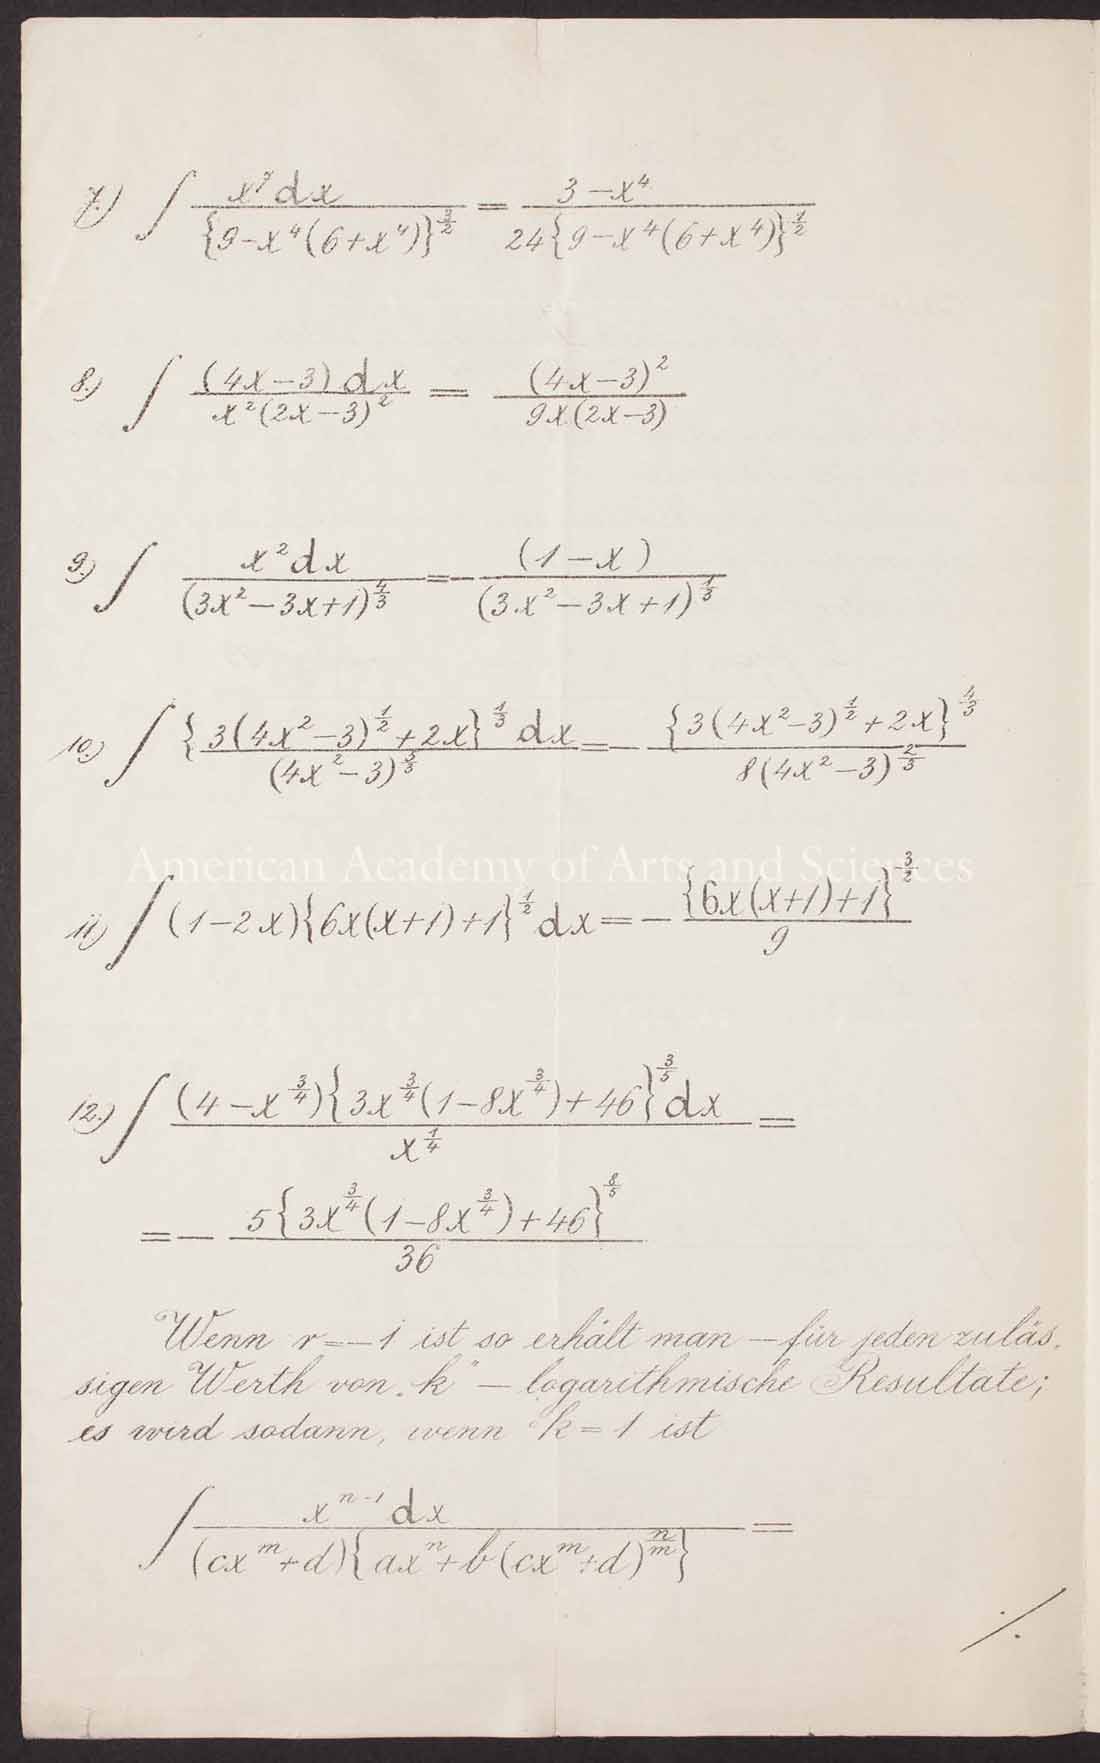 7.) ∫ x⁷dx / {9-x⁴(6+x⁴)}^(3/2) = 3-x⁴ / 24{9-x⁴(6+x⁴)}^(1/2)
8.) ∫ (4x-3)dx / x²(2x-3)² = (4x-3)² / 9x(2x-3)
9.) ∫ x²dx / (3x²-3x+1)^(4/3) = - (1-x) / (3x²-3x+1)^(1/3)
10.) ∫ {3(4x²-3)^(1/2)+2x}^(1/3) dx / (4x²-3)^(5/3) = - {3(4x²-3)^(1/2)+2x}^(4/3) / 8(4x²-3)^(2/3)
American Academy of Arts and Sciences
11.) ∫ (1-2x){6x(x+1)+1}^(1/2) dx = - {6x(x+1)+1}^(3/2) / 9
12.) ∫ (4-x^(3/4)){3x^(3/4)(1-8x^(3/4))+46}^(3/5) dx / x^(1/4) =
= - 5{3x^(3/4)(1-8x^(3/4))+46}^(8/5) / 36
Wenn r=-1 ist so erhält man - für jeden zuläs-
sigen Werth von „k" - logarithmische Resultate;
es wird sodann, wenn k=1 ist
∫ x^(n-1) dx / (cx^m+d){ax^n+b(cx^m+d)^(n/m)} =
./.